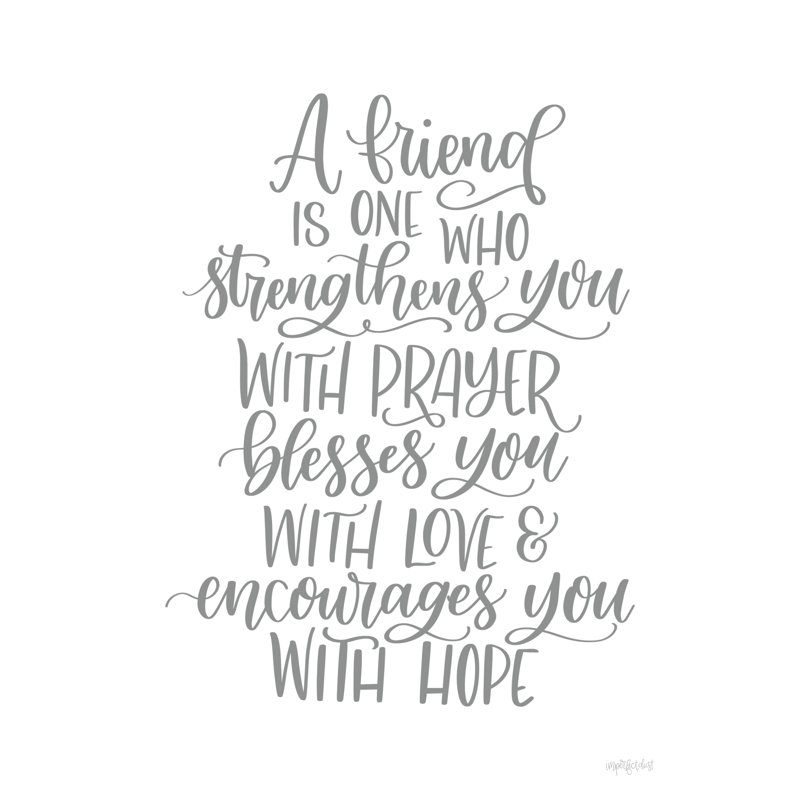 A friend
IS ONE WHO
strengthens you
WITH PRAYER
blesses you
WITH LOVE &
encourages you
WITH HOPE
imperfectdust